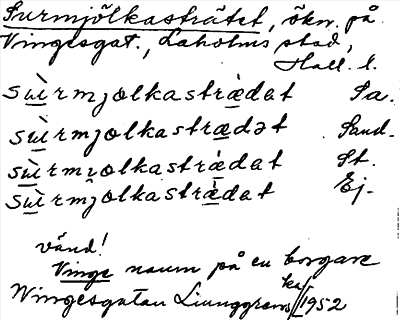 Surmjölkasträtet, ökn. på
Vingesgat., Laholms stad,
Hall. l.
sùrmjolkastràdat Sa.
sùrmjolkastrądət Sand.
sùrmjolkastràdat St.
sùrmjolkastràdat Ej.
vänd!
Vinge namn på en borgare
Wingesgatan Ljunggrens 1952